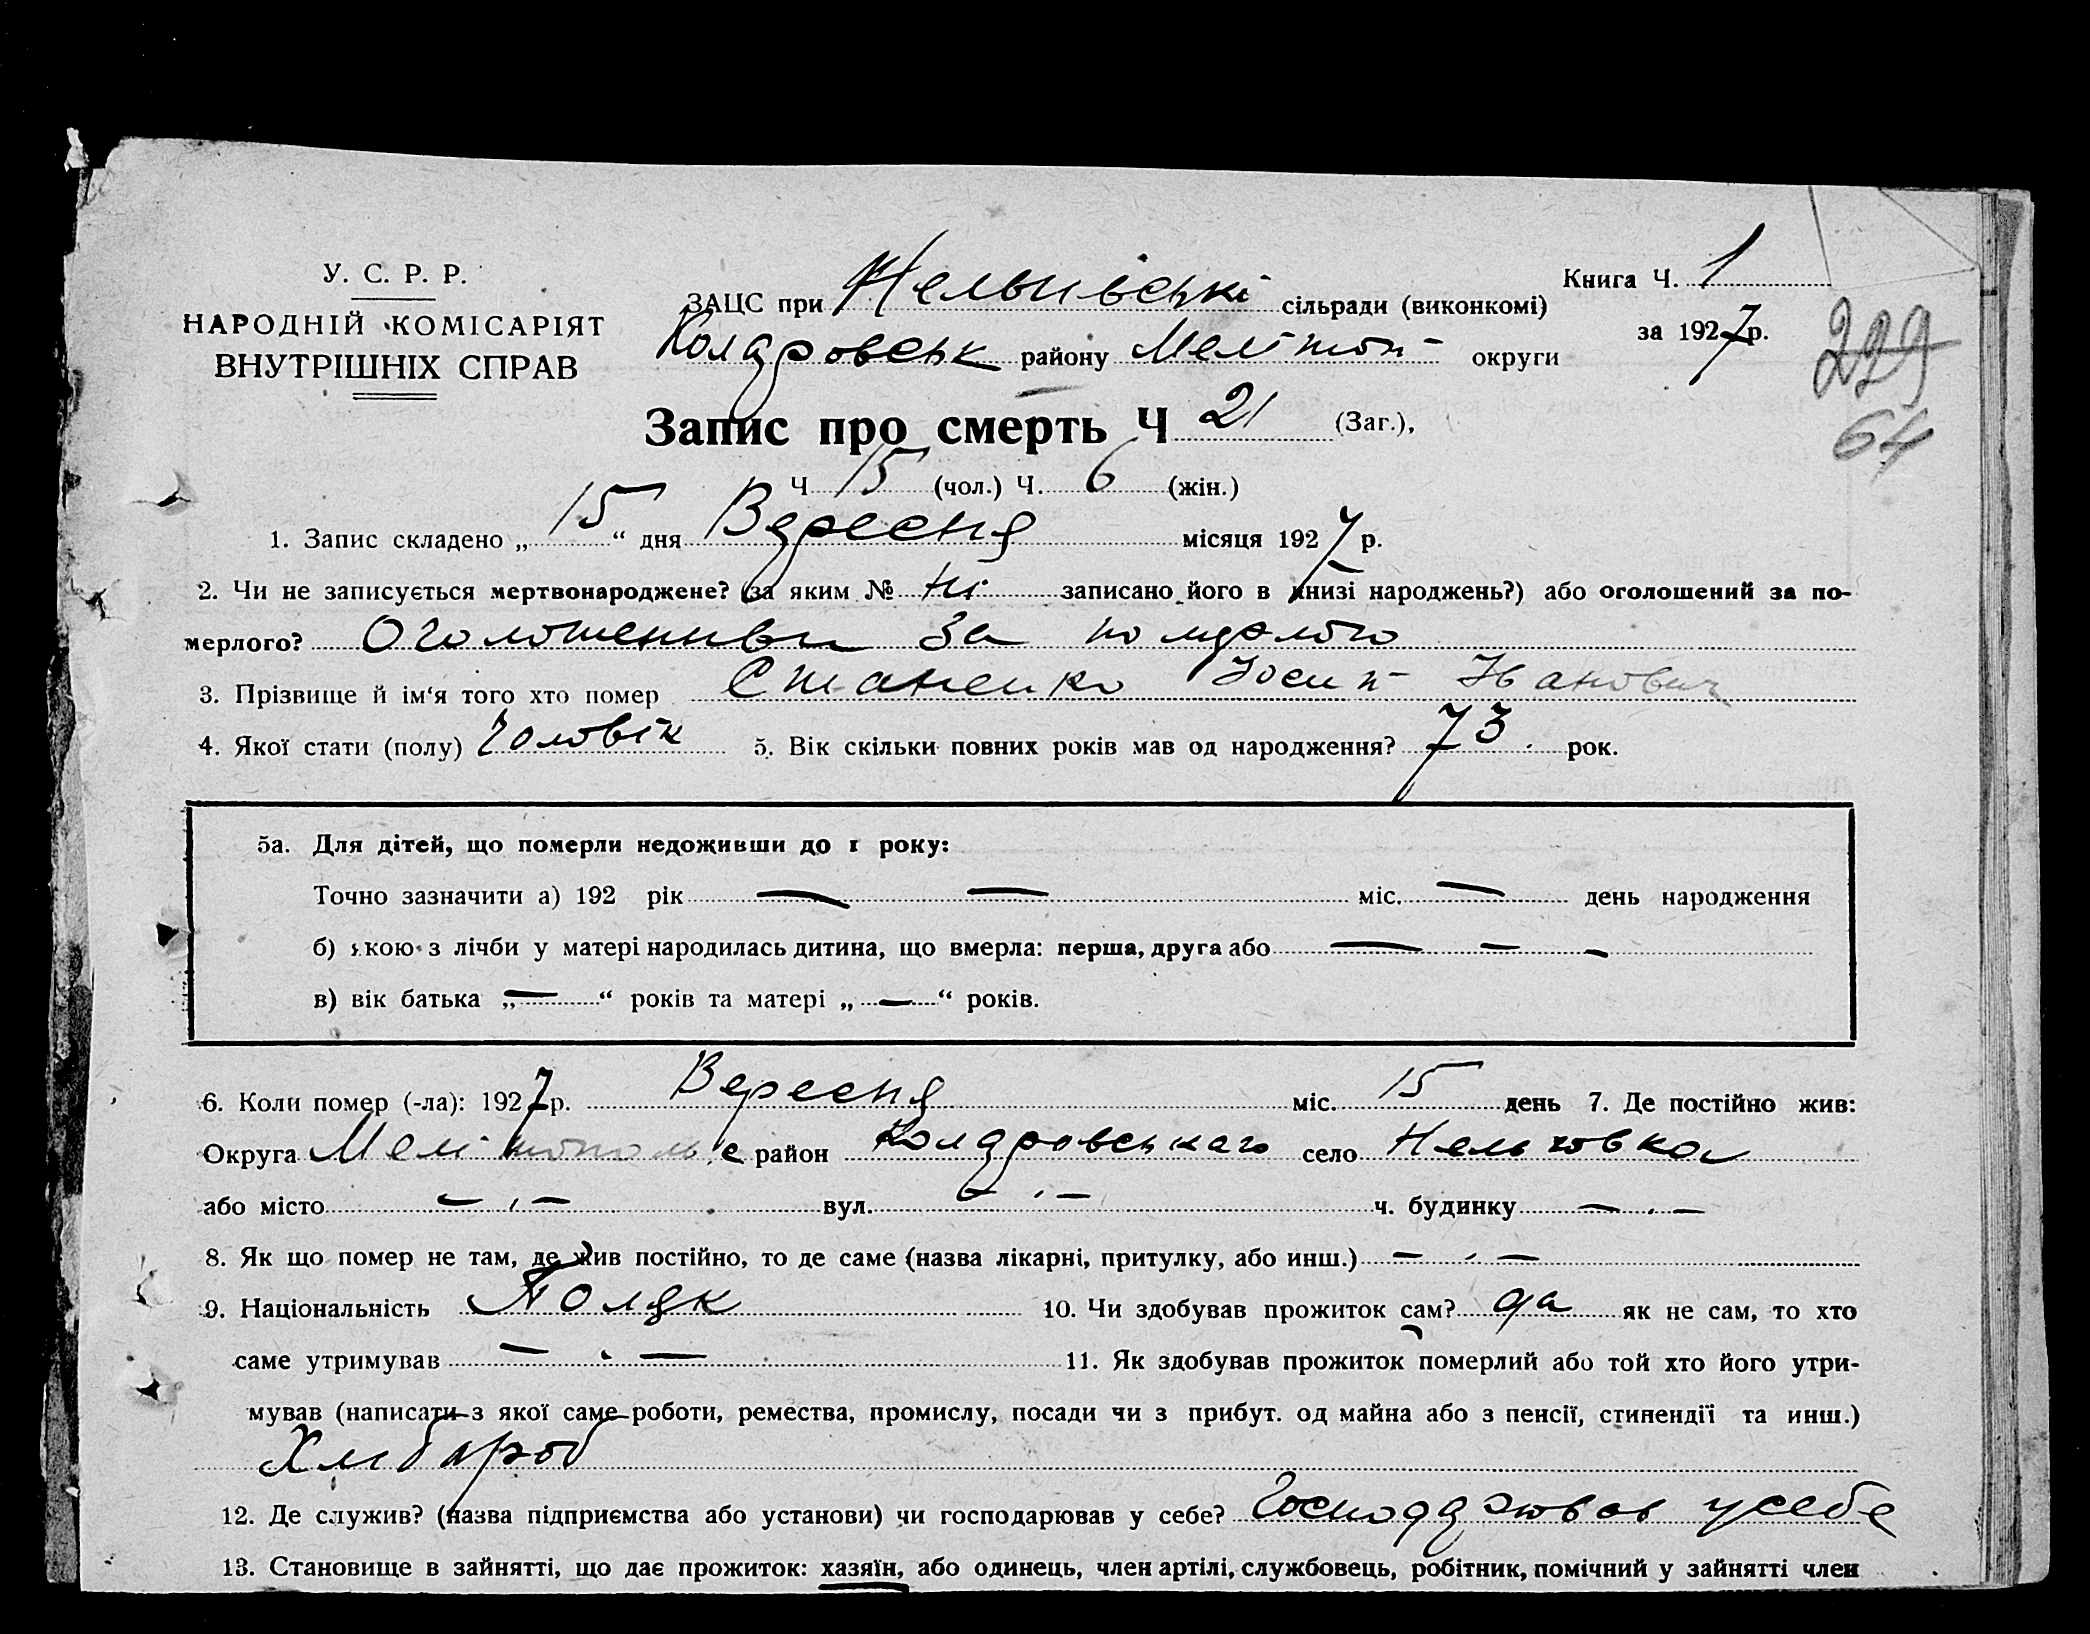 У. С. Р. Р.
НАРОДНІЙ КОМІСАРІЯТ
ВНУТРІШНІХ СПРАВ
ЗАЦС при Нельгівські сільради (виконкомі)
Колдровськ району Мелітоп округи
Книга Ч. 1
за 1927 р.
229
64
Запис про смерть Ч 21 (Заг.),
Ч 15 (чол.) Ч. 6 (жін.)
1. Запис складено „15“ дня Вересня місяця 1927 р.
2. Чи не записується мертвонароджене? (за яким № ні записано його в книзі народжень?) або оголошений за по-
мерлого? Оголошенный за помэрлого
3. Прізвище й ім‘я того хто помер Станенко Йосип Иванович
4. Якої стати (полу) Чоловік 5. Вік скільки повних років мав од народження? 73. рок.
5а. Для дітей, що померли недоживши до 1 року:
Точно зазначити а) 192 рік — — міс. — день народження
б) якою з лічби у матері народилась дитина, що вмерла: перша, друга або — — -
в) вік батька „—“ років та матері „—“ років.
6. Коли помер (-ла): 1927 р. Вересня міс. 15 день 7. Де постійно жив:
Округа Мелітополь район село
або місто — . — вул. — . — ч. будинку — . —
8. Як що помер не там, де жив постійно, то де саме (назва лікарні, притулку, або инш.) — . —
9. Національність Поляк 10. Чи здобував прожиток сам? да як не сам, то хто
саме утримував — . — 11. Як здобував прожиток померлий або той хто його утри-
мував (написати з якої саме роботи, ремества, промислу, посади чи з прибут. од майна або з пенсії, стипендії та инш.)
Хлібароб
12. Де служив? (назва підприємства або установи) чи господарював у себе? усебе
13. Становище в зайнятті, що дає прожиток: хазяїн, або одинець, член артілі, службовець, робітник, помічний у зайнятті член